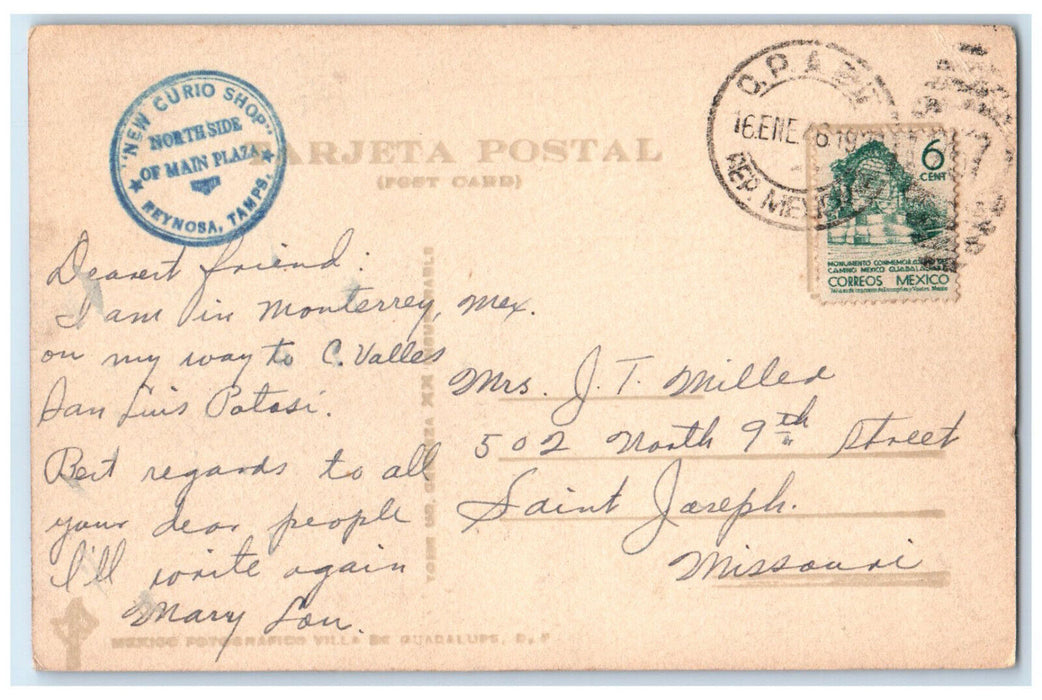 "NEW CURIO SHOP"
NORTH SIDE
OF MAIN PLAZA
REYNOSA, TAMPS.
TARJETA POSTAL
(POST CARD)
16 ENE. 46 19
REP. MEXICANA
6
CENT
CORREOS MEXICO
Dearest friend:
I am in Monterrey, Mex.
on my way to C. Valles
San Luis Potosi.
Best regards to all
your dear people
I'll write again
Mary Lou.
Mrs. J. T. Milled
502 North 9th Street
Saint Joseph.
Missouri
MEXICO FOTOGRAFICO VILLA DE GUADALUPE, D. F